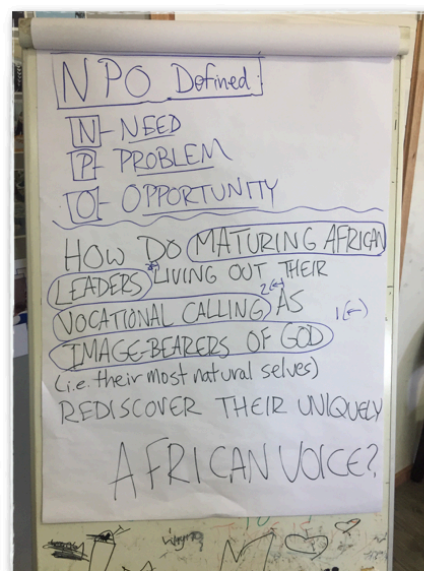 NPO Defined:
N - NEED
P - PROBLEM
O - OPPORTUNITY
HOW DO MATURING AFRICAN
LEADERS LIVING OUT THEIR
VOCATIONAL CALLING 2(←) AS
IMAGE-BEARERS OF GOD 1(←)
(i.e. their most natural selves)
REDISCOVER THEIR UNIQUELY
AFRICAN VOICE?